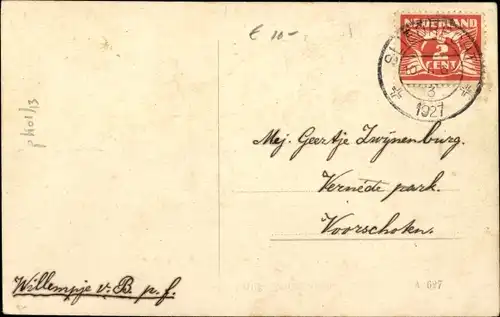 € 10-
NEDERLAND
2
CENT
1927
Mej. Geertje Zwijnenburg.
Vernède park.
Voorschoten.
Willempje v. B. p. f.